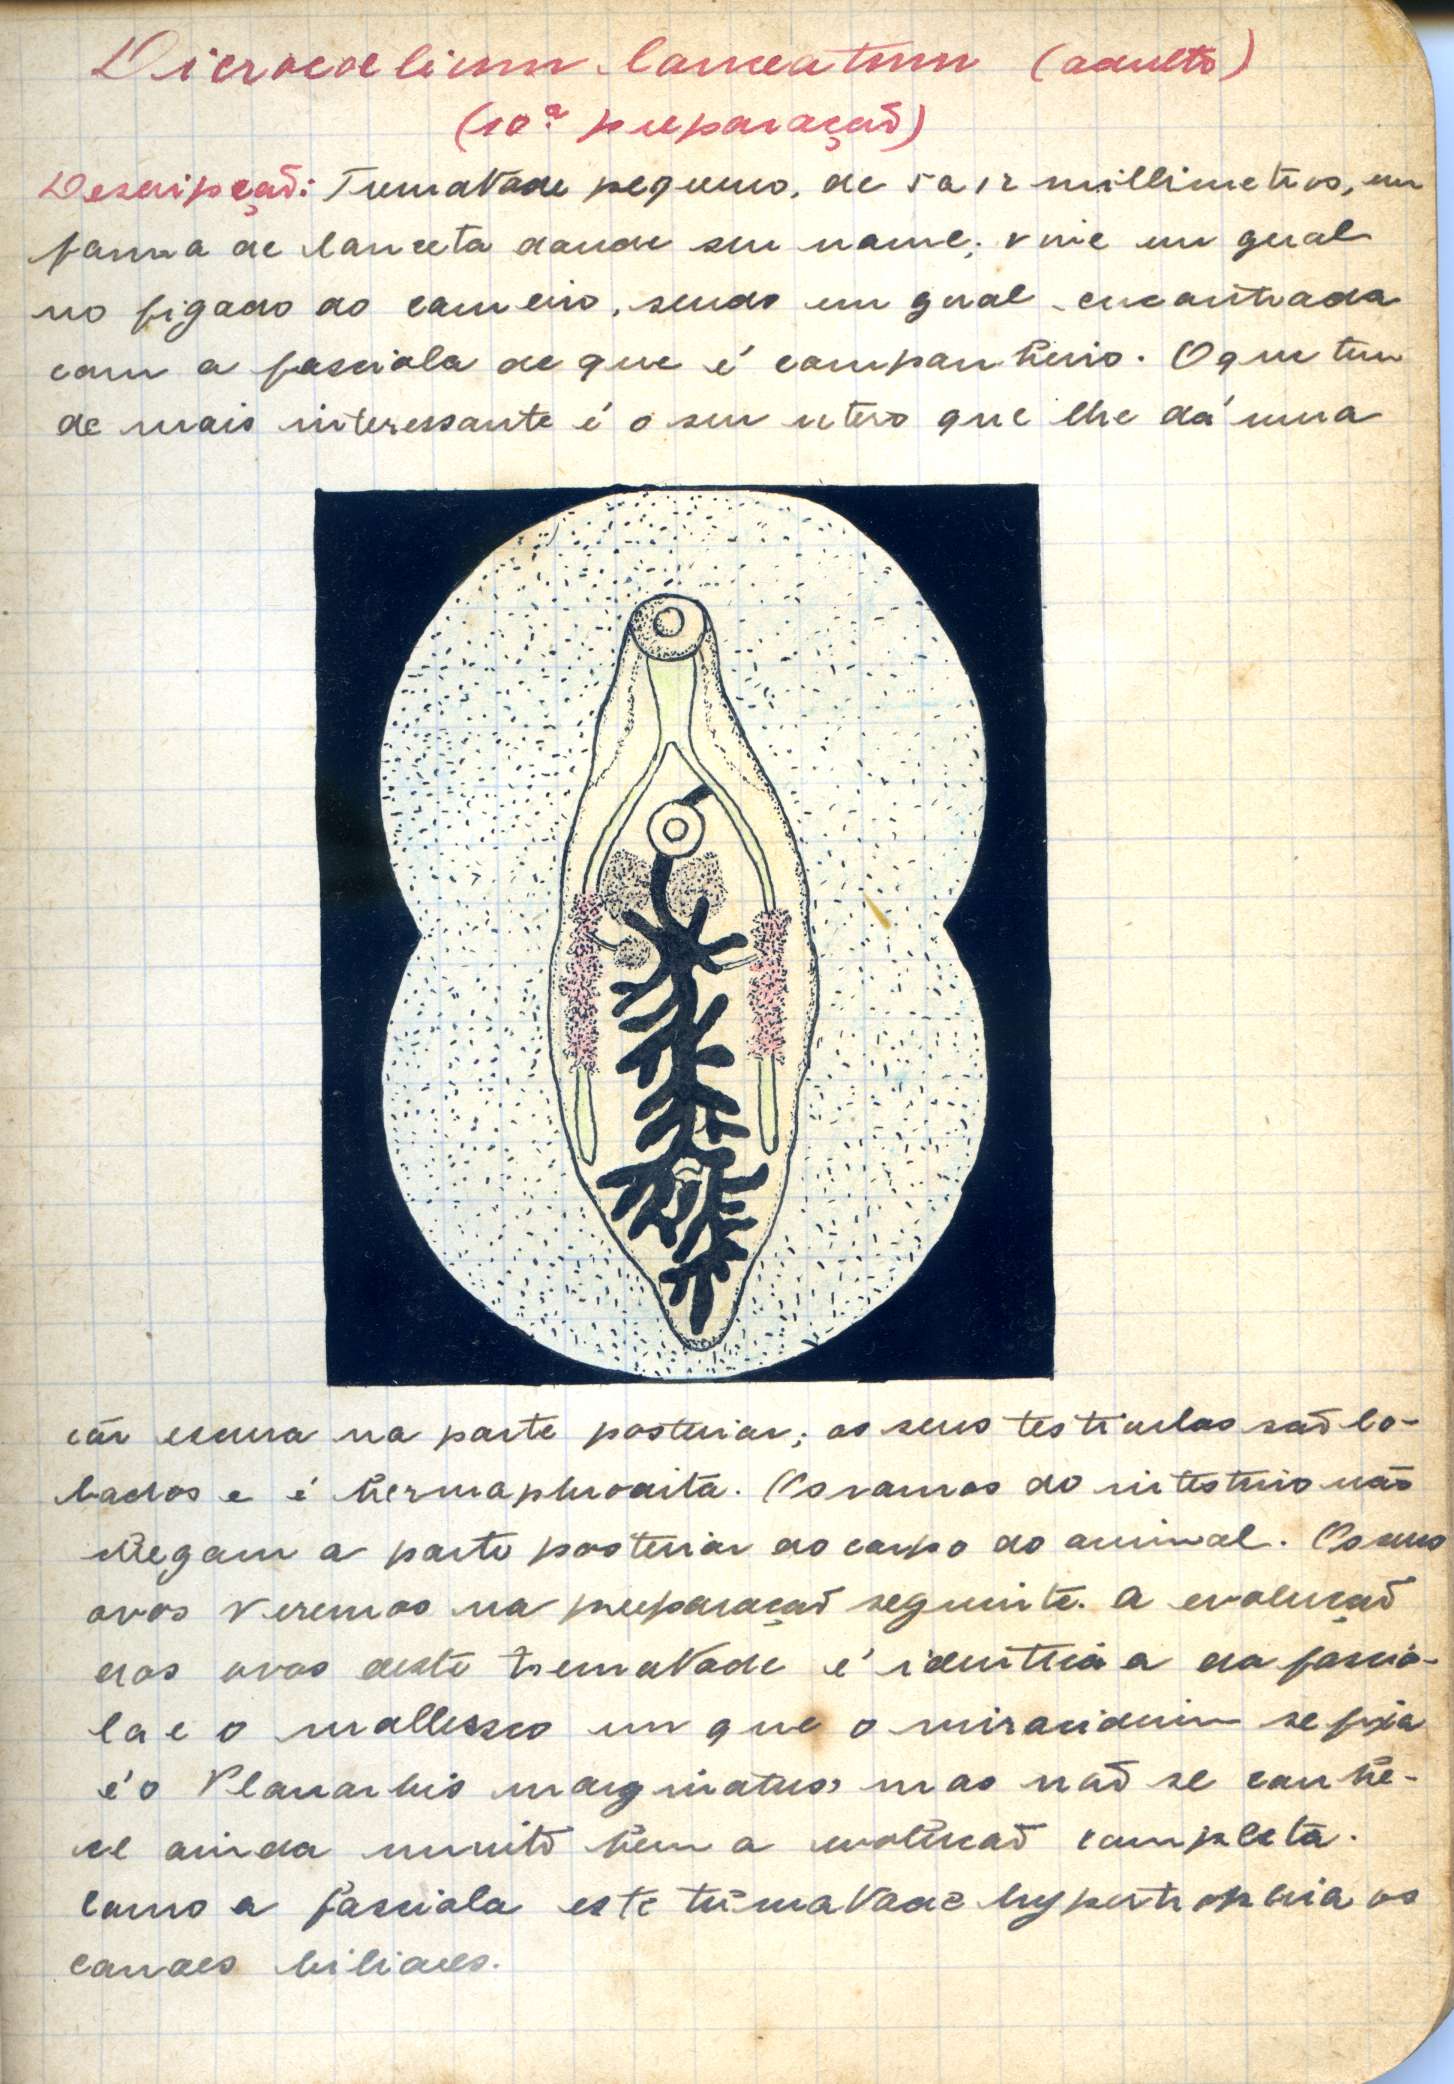 Dicrocoelium lanceatum (adulto)
(10ª preparação)
Descripção: Trematode pequeno, de 5 a 12 millimetros, em
forma de lanceta donde seu nome; vive em geral
no figado do carneiro, sendo em geral encontrada
com a fasciola de que é companheiro. O que tem
de mais interessante é o seu utero que lhe dá uma
côr escura na parte posterior; os seus testiculos são lo-
bados e é hermaphrodita. Os ramos do intestino não
chegam a parte posterior do corpo do animal. Os seus
ovos veremos na preparação seguinte. A evolução
dos ovos deste trematode é identica a da fascio-
la e o mollusco em que o miracidium se fixa
é o Planorbis marginatus, mas não se conhe-
ce ainda muito bem a evolução completa.
Como a fasciola este trematode hypertrophia os
canaes biliares.